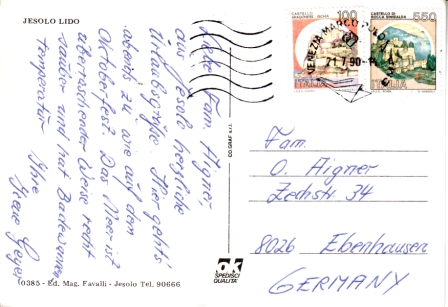 JESOLO LIDO
Liebe Fam. Aigner,
aus Jesolo herzliche
Urlaubsgrüße. Hier geht's
abends zu wie auf dem
Oktoberfest. Das Meer ist
überraschender Weise recht
sauber und hat Badewannen
temperatur. Ihre
Geyer
0385 - Ed. Mag. Favalli - Jesolo Tel. 90666
CO GRAF s.r.l.
OK
SPEDISCI
QUALITÀ
CASTELLO
ARAGONESE ISCHIA
100
ITALIA
CASTELLO DI
ROCCA SINIBALDA
550
ITALIA
VENEZIA MARCO POLO
21.7.90
Fam.
O. Aigner
Zechstr. 34
8026 Ebenhausen
GERMANY